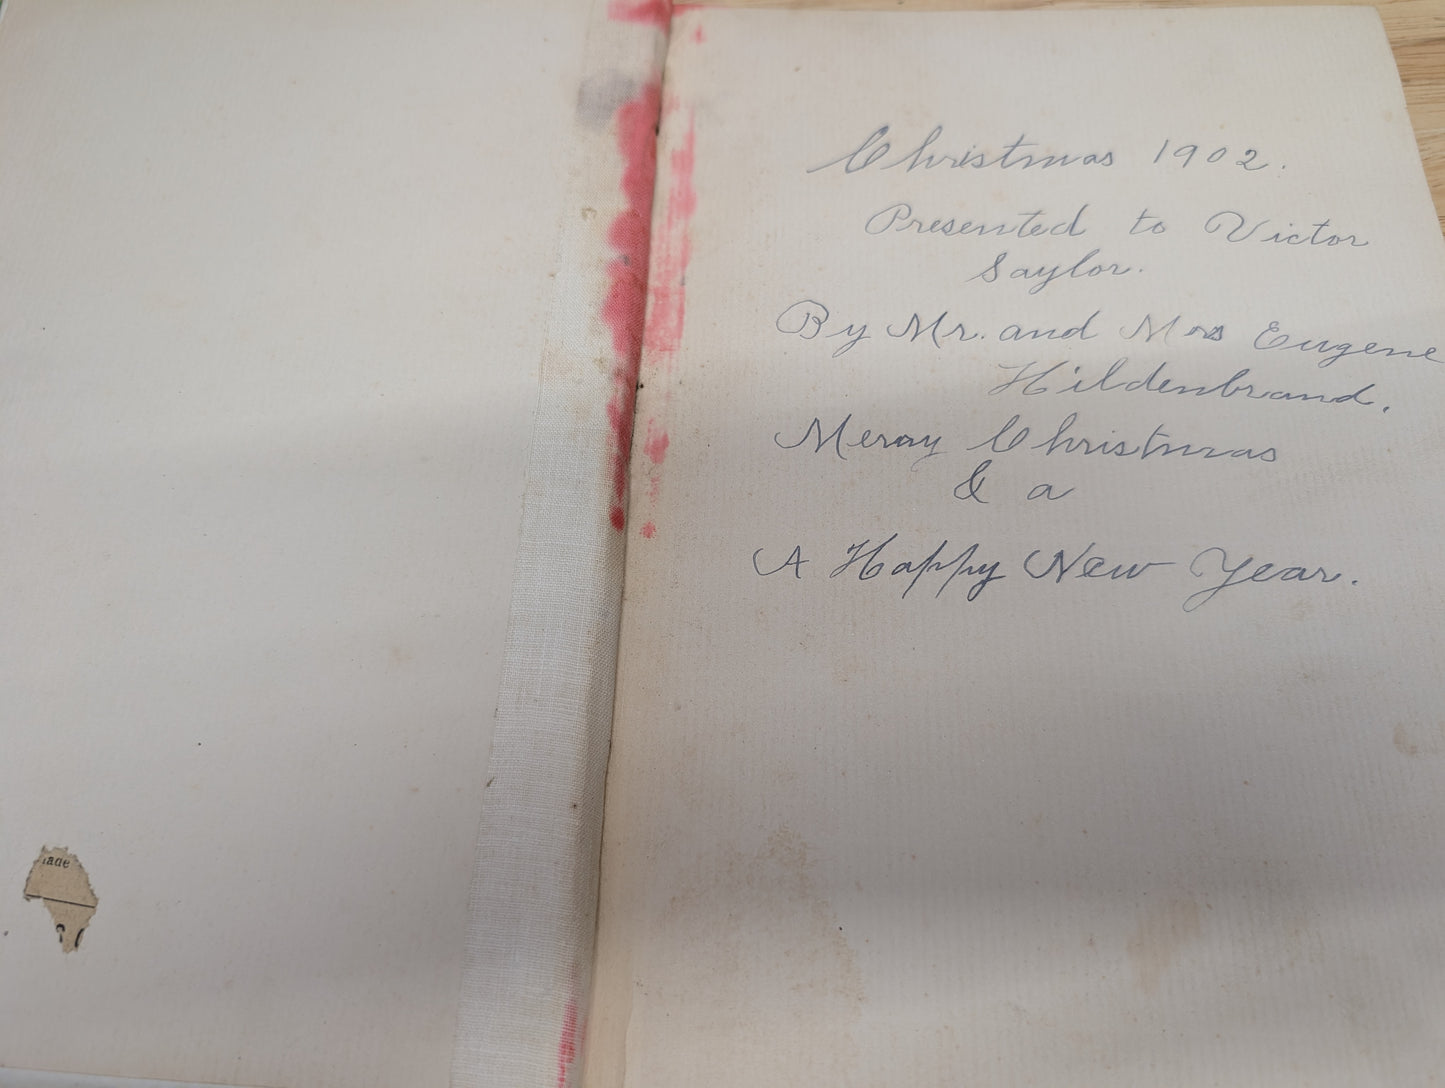 Christmas 1902.
Presented to Victor
Saylor.
By Mr. and Mrs Eugene
Hildenbrand.
Merry Christmas
& a
A Happy New Year.
ade